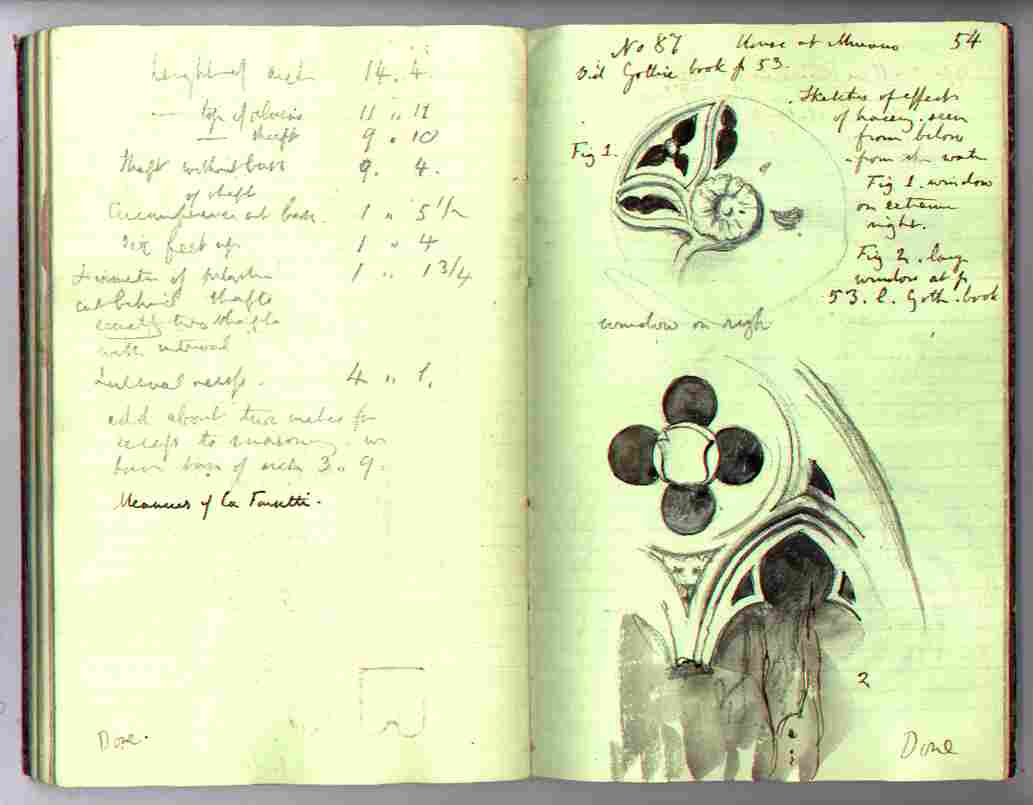 height of arch 14.4
— top of 11 " 11
— shaft 9 . 10
shaft without base 9. 4.
of shaft
Circumference at base. 1 " 5 1/2
Six feet up 1 " 4
Diameter of pilaster 1 " 1 3/4
shafts
exactly two shafts
with interval
Interval 4 "
add about two inches for
to masonry.
base of arch 3. 9.
Measures of Ca Fousetti.
Done.
No 87 House at Murano 54
Vid Gothic book p 53.
Sketches of effect
of tracery. seen
from below
from the water
Fig 1.
Fig 1. window
on extreme
right.
Fig 2. large
window at p
53. l. Goth. book
window on right
2
Done